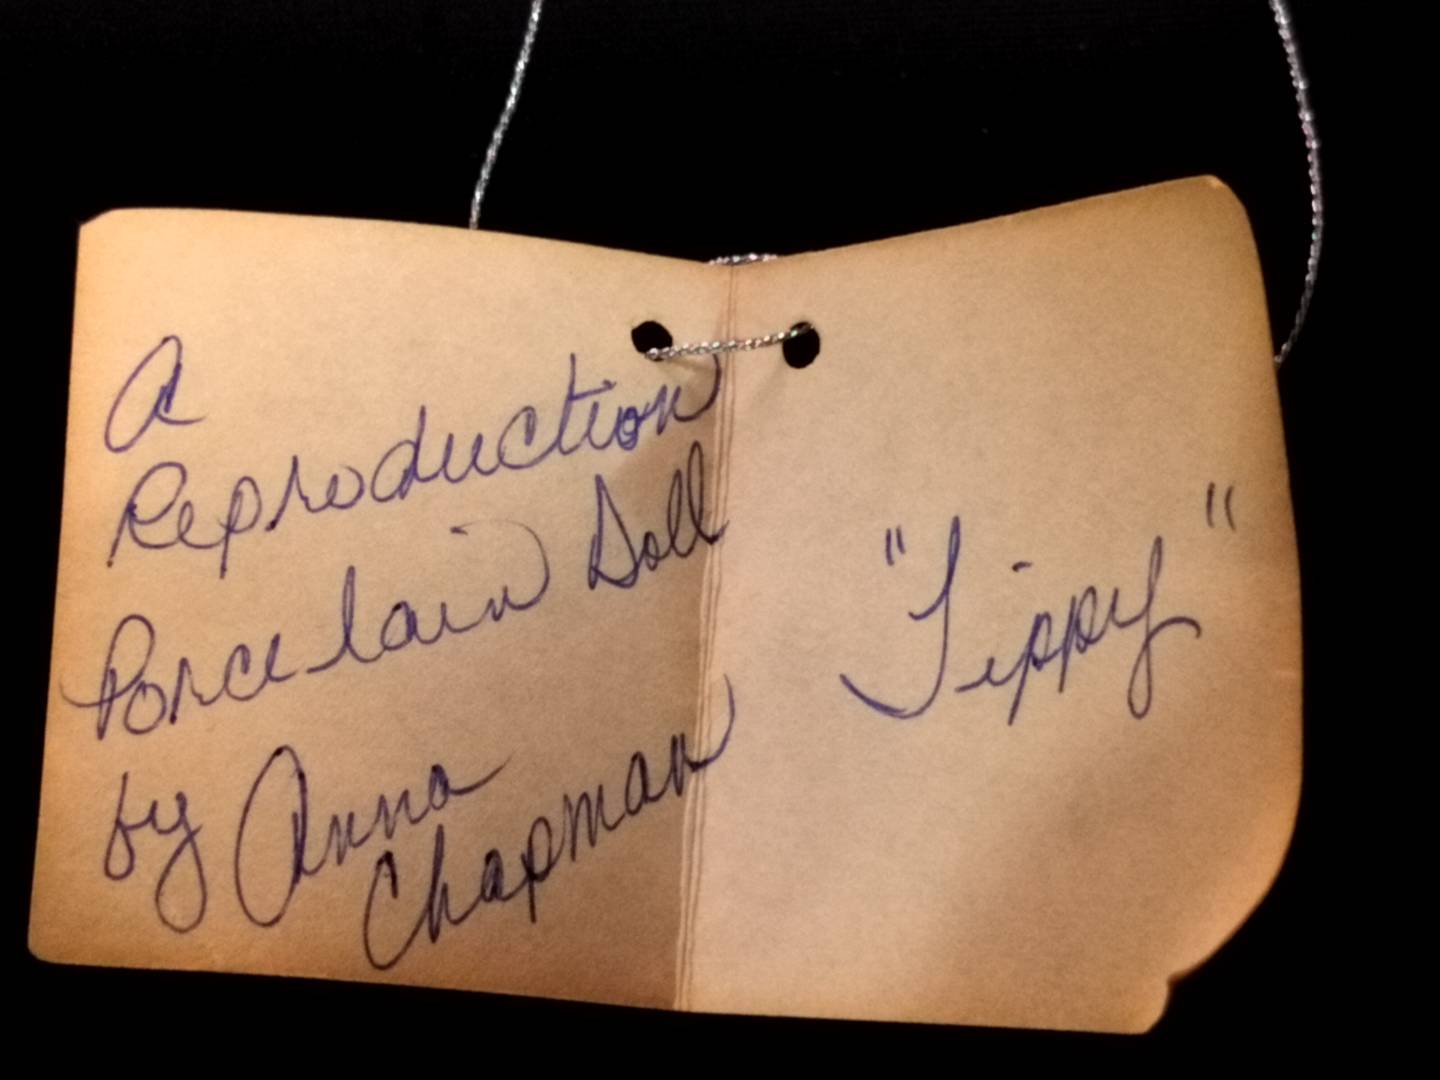 A
Reproduction
Porcelain Doll
by Anna
Chapman
"Tippy"